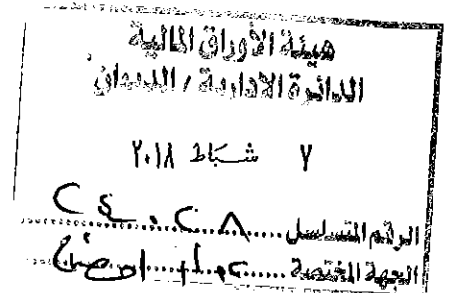 هيئة الأوراق المالية
الدائرة الادارية / الديوان
٧ شباط ٢٠١٨
الرقم المتسلسل
الجهة المختصة